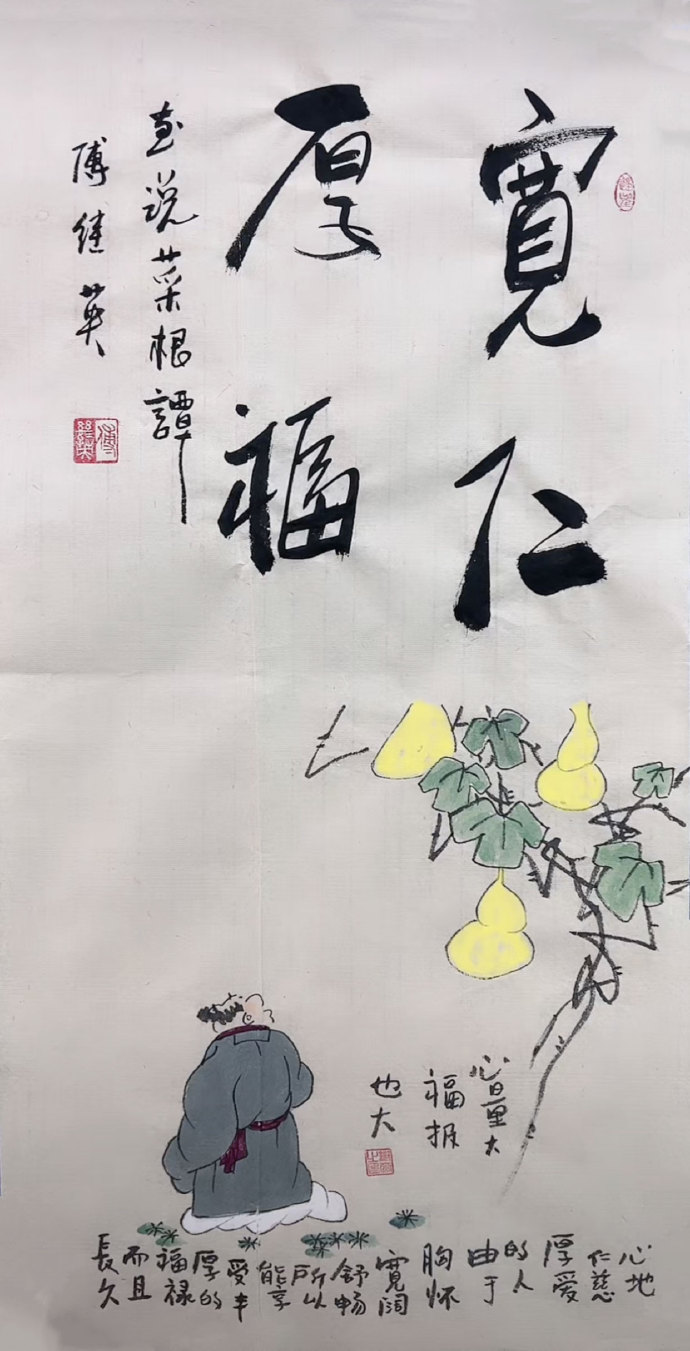 寬仁
厚福
画说菜根譚
傅继英
心量大
福报
也大
心地
仁慈
厚爱
的人
由于
胸怀
寬阔
舒畅
所以
能享
受丰
厚的
福禄
而且
長久